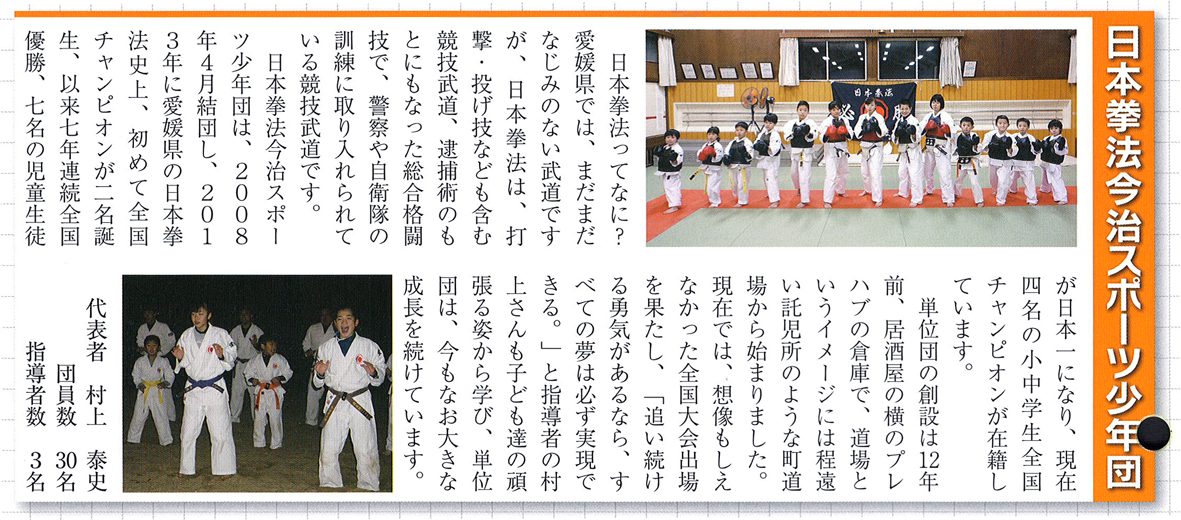 日本拳法今治スポーツ少年団
日本拳法
必 勝
日本拳法ってなに?
愛媛県では、まだまだ
なじみのない武道です
が、日本拳法は、打
撃・投げ技なども含む
競技武道、逮捕術のも
とにもなった総合格闘
技で、警察や自衛隊の
訓練に取り入れられて
いる競技武道です。
日本拳法今治スポー
ツ少年団は、2008
年4月結団し、201
3年に愛媛県の日本拳
法史上、初めて全国
チャンピオンが二名誕
生、以来七年連続全国
優勝、七名の児童生徒
が日本一になり、現在
四名の小中学生全国
チャンピオンが在籍し
ています。
単位団の創設は12年
前、居酒屋の横のプレ
ハブの倉庫で、道場と
いうイメージには程遠
い託児所のような町道
場から始まりました。
現在では、想像もしえ
なかった全国大会出場
を果たし、「追い続け
る勇気があるなら、す
べての夢は必ず実現で
きる。」と指導者の村
上さんも子ども達の頑
張る姿から学び、単位
団は、今もなお大きな
成長を続けています。
代表者 村上 泰史
団員数 30名
指導者数 3名